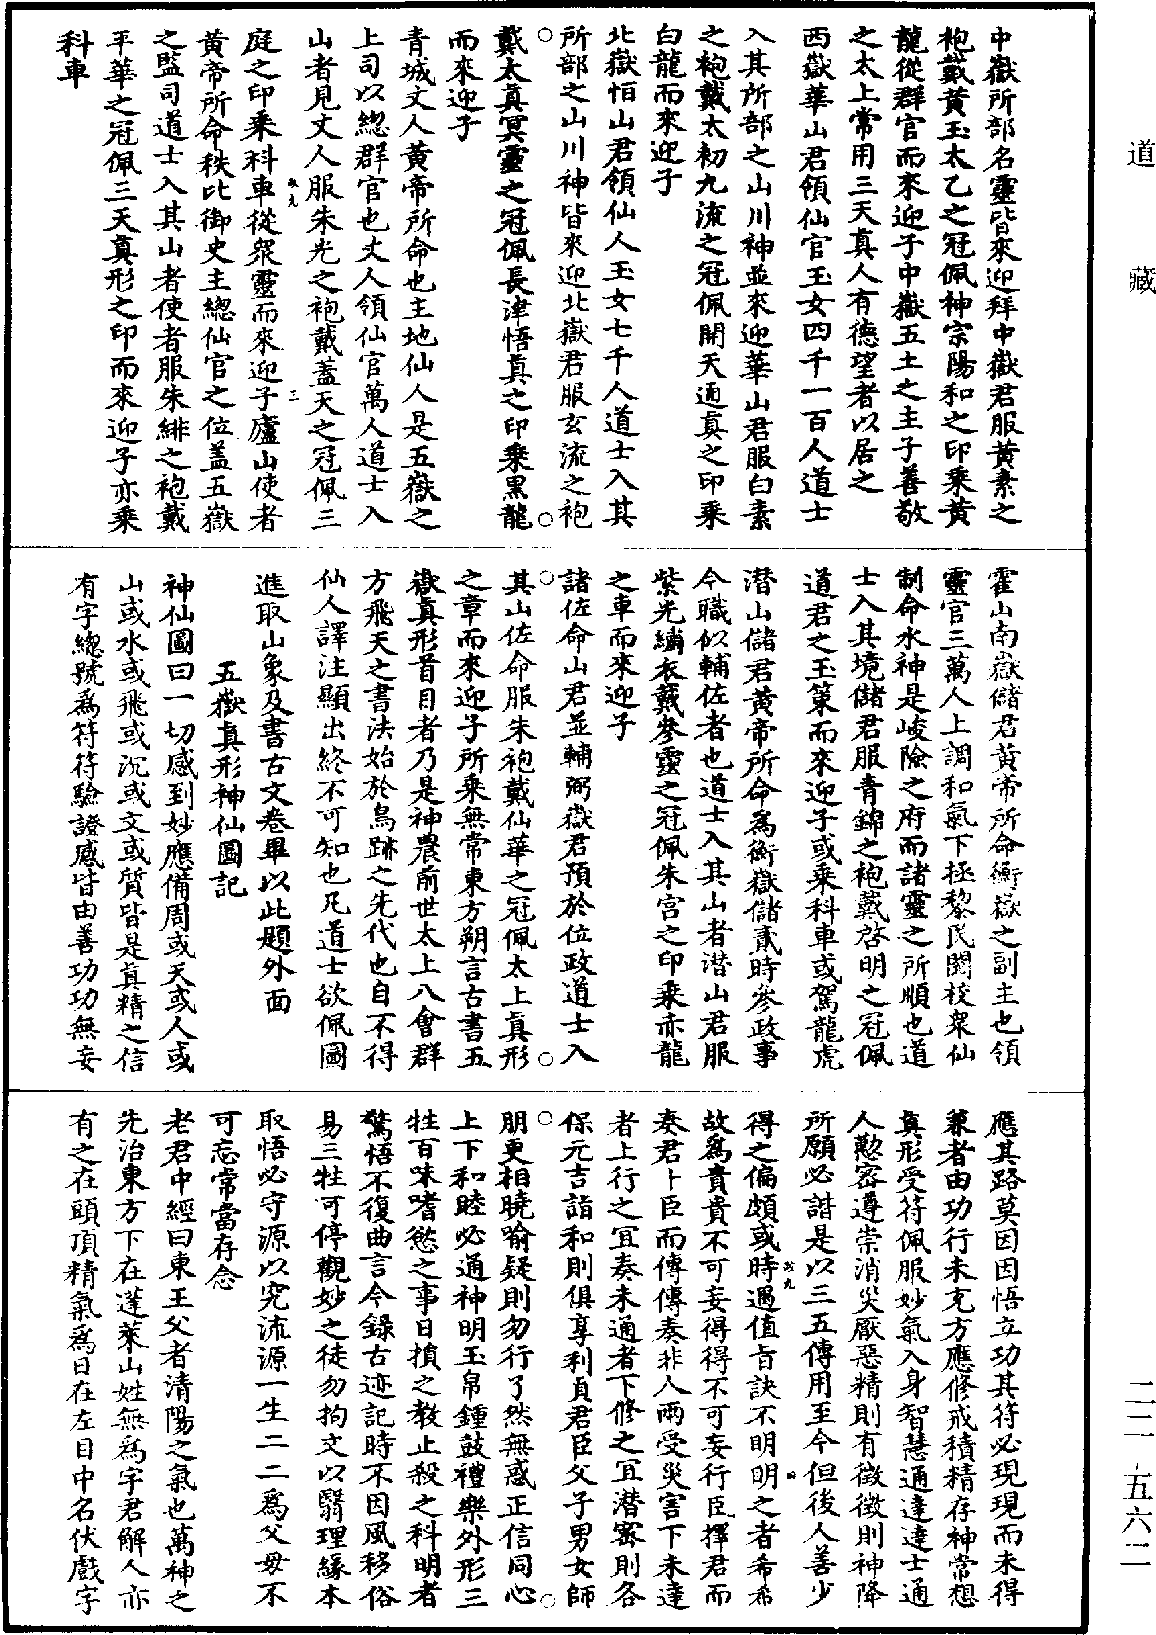 道藏
中嶽所部名靈皆來迎拜中嶽君服黃素之
袍戴黃玉太乙之冠佩神宗陽和之印乘黃
龍從群官而來迎子中嶽五土之主子善敬
之太上常用三天真人有德望者以居之
西嶽華山君領仙官玉女四千一百人道士
入其所部之山川神並來迎華山君服白素
之袍戴太初九流之冠佩開天通真之印乘
白龍而來迎子
北嶽恒山君領仙人玉女七千人道士入其
所部之山川神皆來迎北嶽君服玄流之袍
戴太真冥靈之冠佩長津悟真之印乘黑龍
而來迎子
青城丈人黃帝所命也主地仙人是五嶽之
上司以總群官也丈人領仙官萬人道士入
山者見丈人服朱光之袍戴蓋天之冠佩三
庭之印乘科車從眾靈而來迎子廬山使者
黃帝所命秩比御史主總仙官之位蓋五嶽
之監司道士入其山者使者服朱緋之袍戴
平華之冠佩三天真形之印而來迎子亦乘
科車
霍山南嶽儲君黃帝所命衡嶽之副主也領
靈官三萬人上調和氣下拯黎民閱校眾仙
制命水神是峻險之府而諸靈之所順也道
士入其境儲君服青錦之袍戴啓明之冠佩
道君之玉策而來迎子或乘科車或駕龍虎
潛山儲君黃帝所命為衡嶽儲貳時參政事
今職似輔佐者也道士入其山者潛山君服
紫光繡衣戴參靈之冠佩朱宮之印乘赤龍
之車而來迎子
諸佐命山君並輔弼嶽君預於位政道士入
其山佐命服朱袍戴仙華之冠佩太上真形
之章而來迎子所乘無常東方朔言古書五
嶽真形首目者乃是神農前世太上八會群
方飛天之書法始於鳥跡之先代也自不得
仙人譯注顯出終不可知也凡道士欲佩圖
進取山象及書古文卷畢以此題外面
五嶽真形神仙圖記
神仙圖曰一切感到妙應備周或天或人或
山或水或飛或沉或文或質皆是真精之信
有字總號為符符驗證感皆由善功功無妄
應其路莫因因悟立功其符必現現而未得
兼者由功行未充方應修戒積精存神常想
真形受符佩服妙氣入身智慧通達達士通
人懃密遵崇消災厭惡精則有徵徵則神降
所願必諧是以三五傳用至今但後人善少
得之偏頗或時遇值旨訣不明明之者希希
故為貴貴不可妄得得不可妄行臣擇君而
奏君卜臣而傳傳奏非人兩受災害下未達
者上行之宜奏未通者下修之宜潛密則各
保元吉詣和則俱享利貞君臣父子男女師
朋更相曉喻疑則勿行了然無惑正信同心
上下和睦必通神明玉帛鍾鼓禮樂外形三
牲百味嗜慾之事日損之教止殺之科明者
驚悟不復曲言今錄古迹記時不因風移俗
易三牲可停觀妙之徒勿拘文以翳理緣本
取悟必守源以究流源一生二二為父母不
可忘常當存念
老君中經曰東王父者清陽之氣也萬神之
先治東方下在蓬萊山姓無為字君解人亦
有之在頭頂精氣為日在左目中名伏戲字
二二·五六二